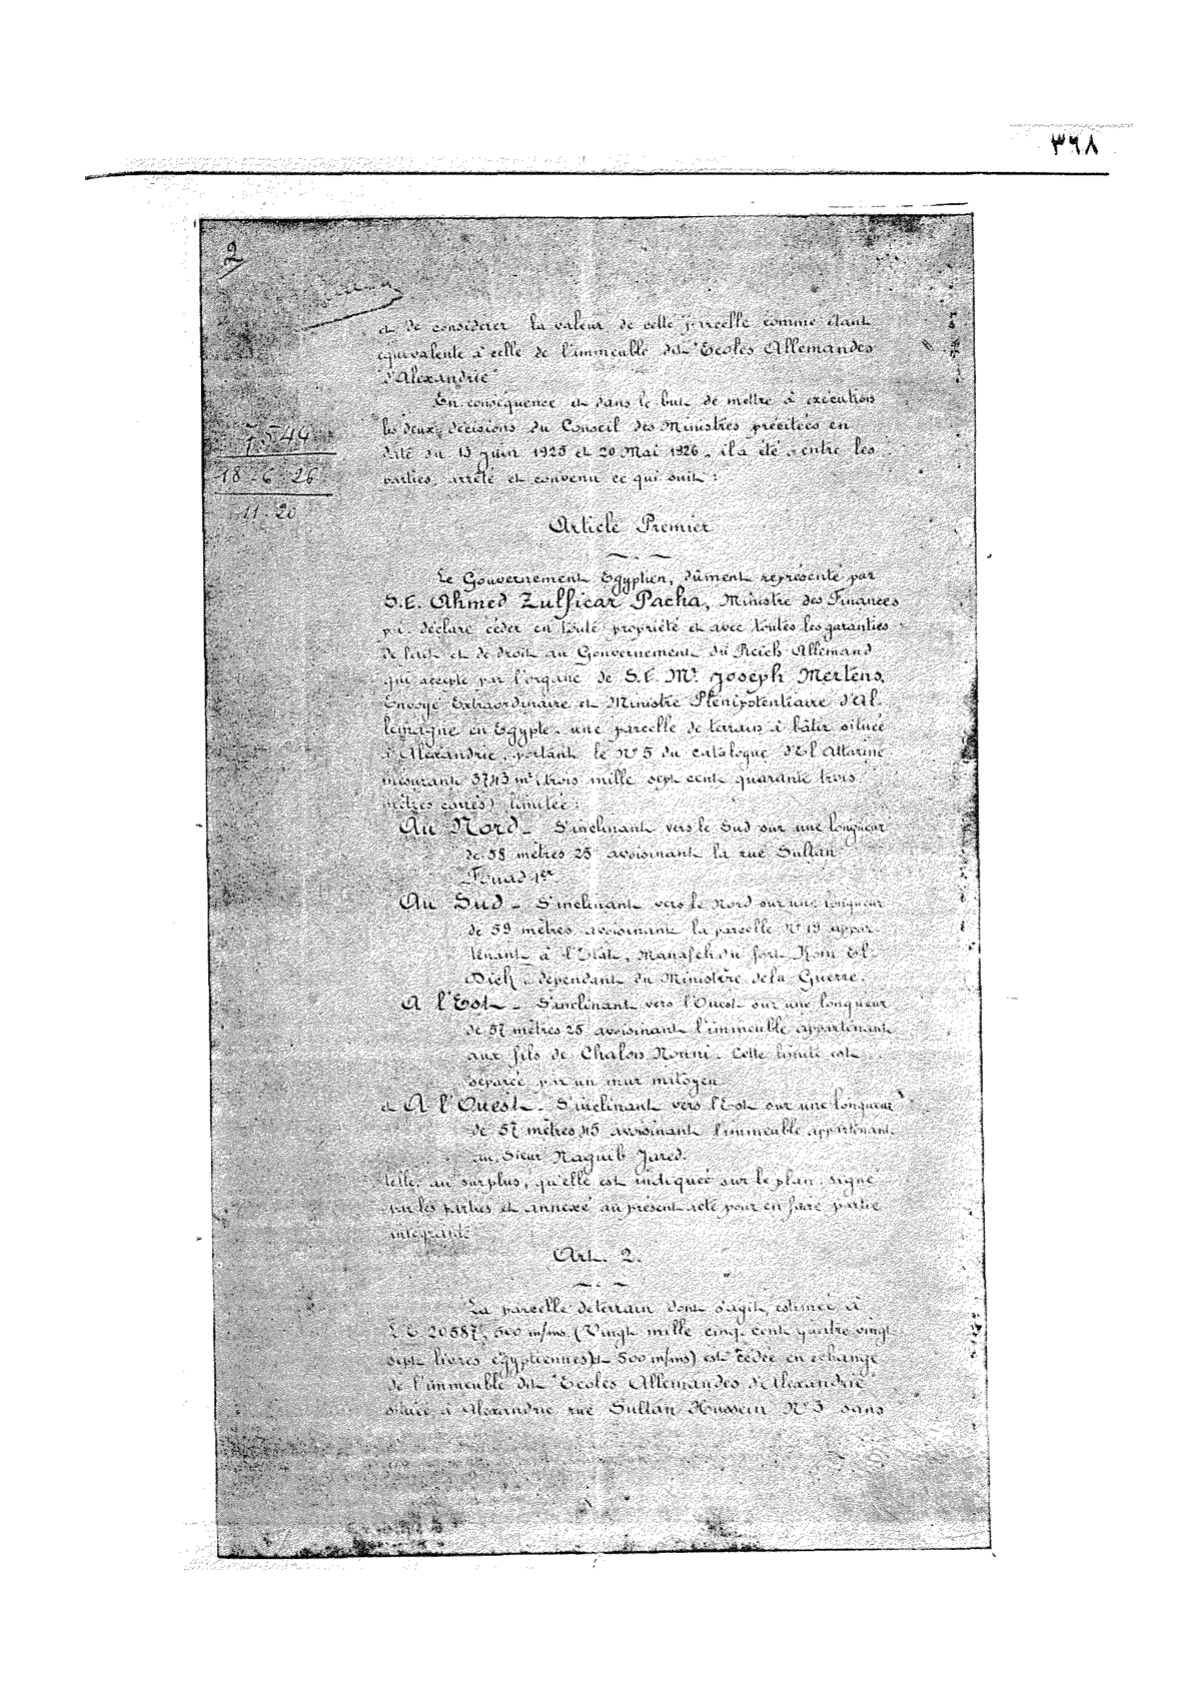 ٣٦٨
2
et de considerer la valeur de cette parcelle comme étant
equivalente à celle de l'immeuble dit "Ecoles Allemandes
d'Alexandrie"
En conséquence et dans le but de mettre à exécution
les deux décisions du Conseil des Ministres précitées en
date du 13 Juin 1925 et 20 Mai 1926, il a été, entre les
parties, arrêté et convenu ce qui suit :
7544
18.6.26
11.20
Article Premier
Le Gouvernement Egyptien, dûment représenté par
S.E. Ahmed Zulficar Pacha, Ministre des Finances
p.i. déclare céder en toute propriété et avec toutes les garanties
de fait et de droit au Gouvernement du Reich Allemand
qui accepte par l'organe de S.E. Mr. Joseph Mertens,
Envoyé Extraordinaire et Ministre Plénipotentiaire d'Al-
lemagne en Egypte, une parcelle de terrain à bâtir située
à Alexandrie, portant le No 5 du catalogue d'El Attarine
mesurant 3743 m² (trois mille sept cent quarante trois
mètres carrés) limitée :
Au Nord - S'inclinant vers le Sud sur une longueur
de 58 mètres 25 avoisinant la rue Sultan
Fouad 1er.
Au Sud - S'inclinant vers le Nord sur une longueur
de 59 mètres avoisinant la parcelle No 19 appar-
tenant à l'Etat, Manafeh du fort Kom El-
Dick, dépendant du Ministère de la Guerre.
A l'Est - S'inclinant vers l'Ouest sur une longueur
de 57 mètres 25 avoisinant l'immeuble appartenant
aux fils de Chalon Nouni. Cette limite est
séparée par un mur mitoyen
et A l'Ouest - S'inclinant vers l'Est sur une longueur
de 57 mètres 45 avoisinant l'immeuble appartenant
au Sieur Naguib Jared.
telle, au surplus, qu'elle est indiquée sur le plan signé
par les parties et annexé au présent acte pour en faire partie
intégrante
Art. 2.
La parcelle de terrain dont s'agit, estimée à
L.E. 20587, 500 m/ms (Vingt mille cinq cent quatre vingt
sept livres égyptiennes et 500 m/ms) est cédée en échange
de l'immeuble dit "Ecoles Allemandes d'Alexandrie"
située à Alexandrie rue Sultan Hussein No 3 sans